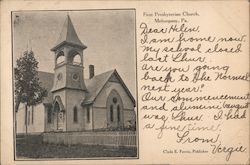 First Presbyterian Church,
Mehoopany, Pa.
Dear Helen,
I am home now.
My school closed
last Thur.
Are you going
back to the Normal
next year?
Our commencement
and alumni banquet
was Thur. I had
a fine time.
From,
Vergie
Clyde E. Ferris, Publisher